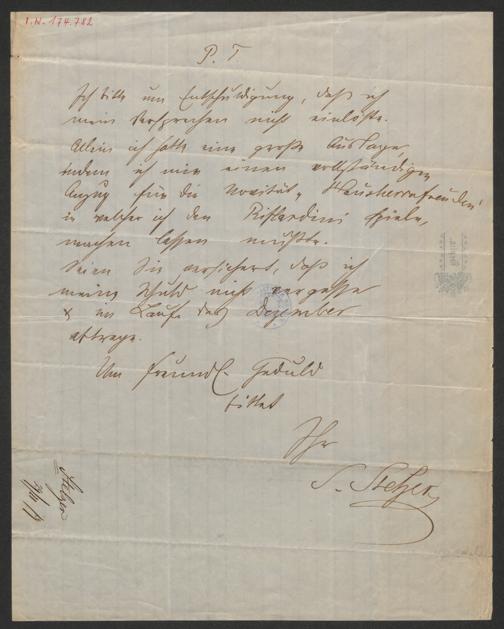 I. N. 174.782
P. T.
Ich bitte um Entschuldigung, daß ich
mein Versprechen nicht einlöste.
Allein ich hatte eine große Auslage,
indem ich mir einen vollständigen
Anzug für die Novität „Hausherrnfreuden"
in welcher ich den spiele,
machen lassen mußte.
Seien Sie versichert, daß ich
meine Schuld nicht vergesse
& im Laufe des Dezember
abtrage.
Um freundl. Geduld
bittet
Ihr
S. Stelzer
Stelzer